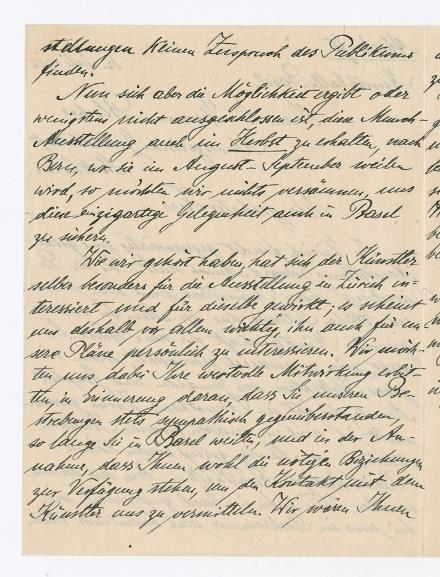 stellungen keinen Zuspruch des Publikums
finden.
Nun sich aber die Möglichkeit ergibt oder
wenigstens nicht ausgeschlossen ist, diese Munch-
Ausstellung auch im Herbst zu erhalten, nach
Bern, wo sie im August–September weilen
wird, so möchten wir nichts versäumen, uns
diese einzigartige Gelegenheit auch in Basel
zu sichern.
Wie wir gehört haben, hat sich der Künstler
selber besonders für die Ausstellung in Zürich in-
teressiert und für dieselbe gewirkt; es scheint
uns deshalb vor allem wichtig, ihn auch für un-
sere Pläne persönlich zu interessieren. Wir möch-
ten uns dabei Ihre wertvolle Mitwirkung erbit-
ten, in Erinnerung daran, dass Sie unseren Be-
strebungen stets sympathisch gegenüberstanden,
so lange Sie in Basel weilten, und in der An-
nahme, dass Ihnen wohl die nötigen Beziehungen
zur Verfügung stehen, um den Kontakt mit dem
Künstler uns zu vermitteln. Wir wären Ihnen